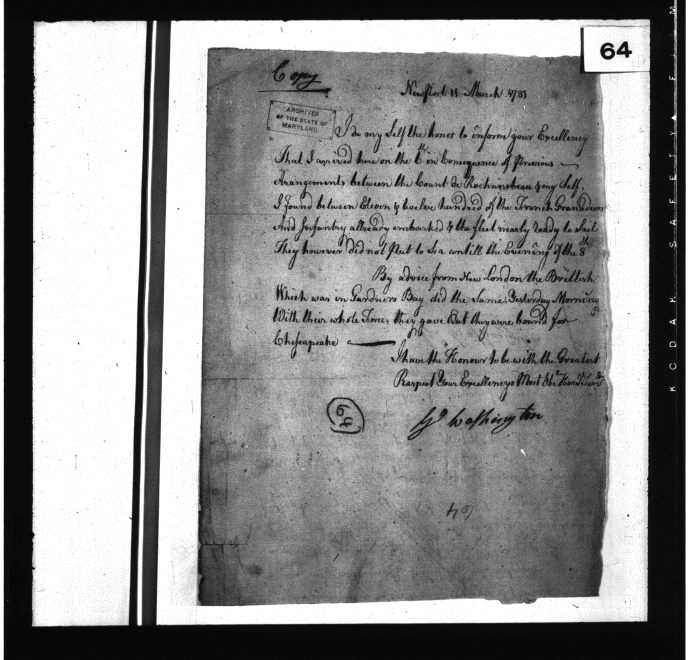 64
Copy
Newport 11 March 1781
ARCHIVES
OF THE STATE OF
MARYLAND
I do my Self the honor to inform your Excellency
That I arrived here on the 6th in Consequence of Previous
Arangements between the Count de Rochambeau & my Self,
I found between Eleven & twelve hundred of the French Granadeers
And Infantry allready embarked & the fleet nearly ready to Sail
They however did not Put to Sea untill the Evening of the 8th
By advice from New London the Brittish
Which was in Gardners Bay did the Same Yesterday Morning
With their whole Force, they gave out they were bound for
Chesapeake
I have the Honour to be with the Greatest
Respect Your Excellencys Most Obt
Go Washington
64
64
KODAK SAFETY FILM